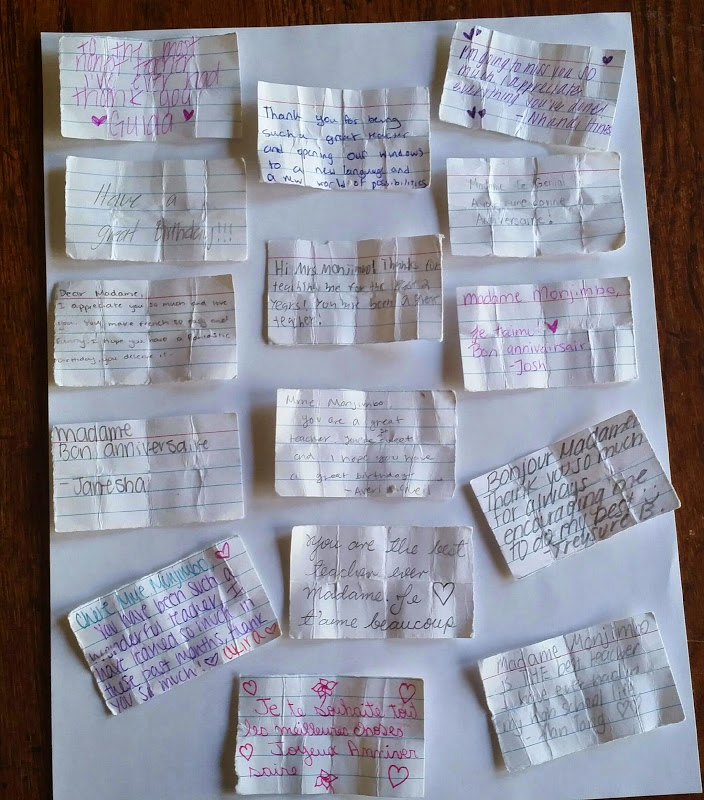 to the most
teacher
I've ever had
thank you
I'm going to miss you SO
much I appreciate
everything you've done!
Thank you for being
such a great teacher
and opening our windows
to a new language and
a new world of possibilities
Have a
great Birthday!!!
Anniversaire!
Hi Mrs Monjimbo! Thanks for
teaching me for the past 2
years! You have been a great
teacher!
Dear Madame,
I appreciate you so much and love
you. You make french so and
funny. I hope you have a fantastic
birthday, you deserve it.
madame Monjimbo,
Je t'aime
Bon annivairsair
-Josh
madame
Bon anniversaire
- Janesha
Mme. Monjimbo
you are a great
teacher
and I hope you have
a great birthday
Bonjour Madame!
Thank you so much
for always
encouraging me
to do my best!
Treasure B.
You are the best
teacher ever
Madame. Je
t'aime beaucoup
Cher Mme Monjimbo
You have been such a
wonderful teacher, I
have learned so much in
these past months, thank
you so much!
Madame Monjimbo
is THE best teacher
in my high school life
Je te souhaite tout
les meilleures choses
Joyeux Anniver
saire